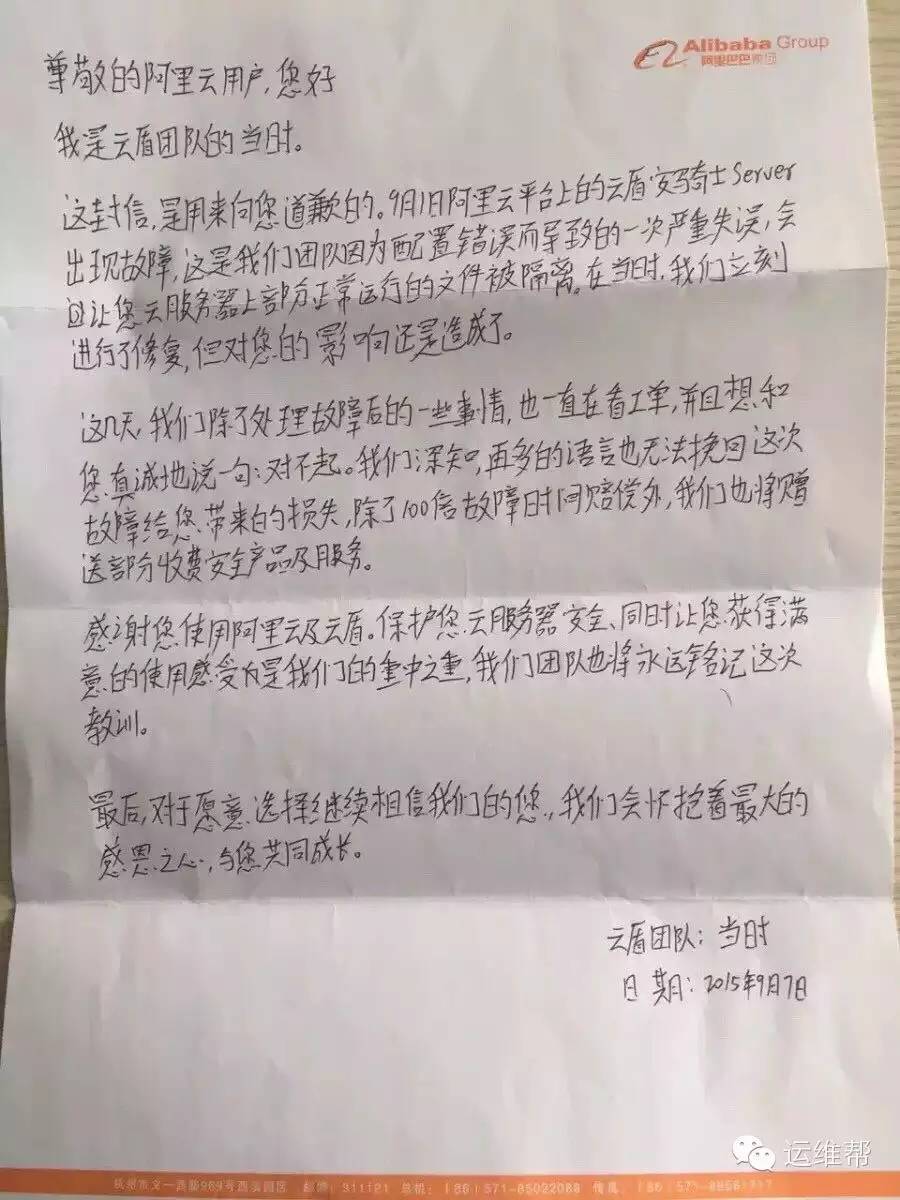 Alibaba Group
阿里巴巴集团
尊敬的阿里云用户,您好
我是云盾团队的当时。
这封信,是用来向您道歉的。9月1日阿里云平台上的云盾安骑士Server
出现故障,这是我们团队因为配置错误而导致的一次严重失误,会
让您云服务器上部分正常运行的文件被隔离。在当时,我们立刻
进行了修复,但对您的影响还是造成了。
这几天,我们除了处理故障后的一些事情,也一直在看工单,并且想和
您真诚地说一句:对不起。我们深知,再多的语言也无法挽回这次
故障给您带来的损失,除了100倍故障时间赔偿外,我们也将赠
送部分收费安全产品及服务。
感谢您使用阿里云及云盾。保护您云服务器安全、同时让您获得满
意的使用感受乃是我们的重中之重,我们团队也将永远铭记这次
教训。
最后,对于愿意选择继续相信我们的您,我们会怀抱着最大的
感恩之心,与您共同成长。
云盾团队:当时
日期:2015年9月7日
运维帮
杭州市文一西路969号西溪园区 邮编:311121 总机:(86)571-85022088